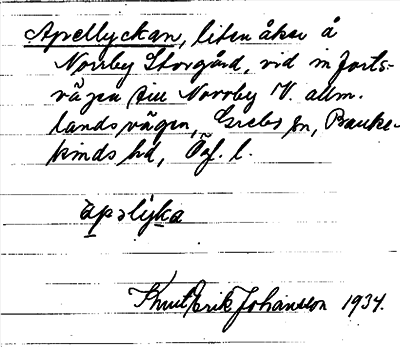 Apellyckan, liten åker å
Norrby Storgård, vid infarts-
vägen till Norrby N. allm.
landsvägen, Grebo sn, Banke-
kinds hd, Ög. l.
apəlyka
Knut Erik Johansson 1934.